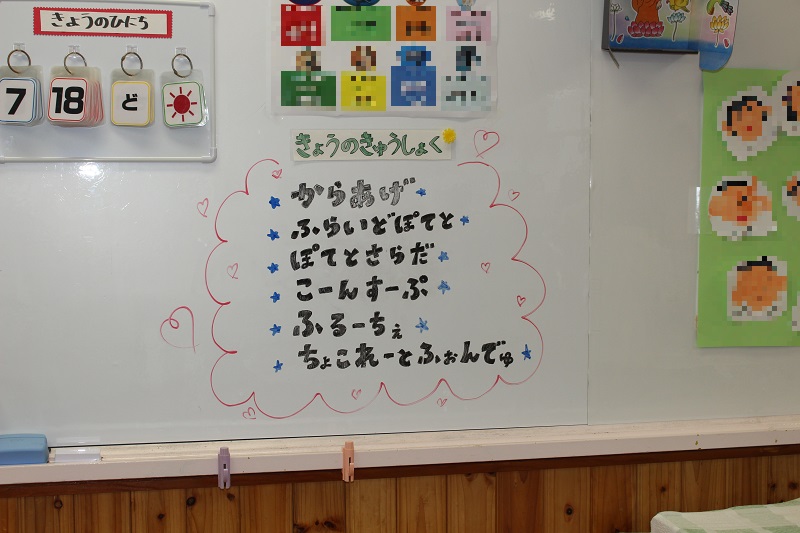 きょうのひにち
7 18 ど
きょうのきゅうしょく
からあげ
ふらいどぽてと
ぽてとさらだ
こーんすーぷ
ふるーちぇ
ちょこれーとふぉんでゅ